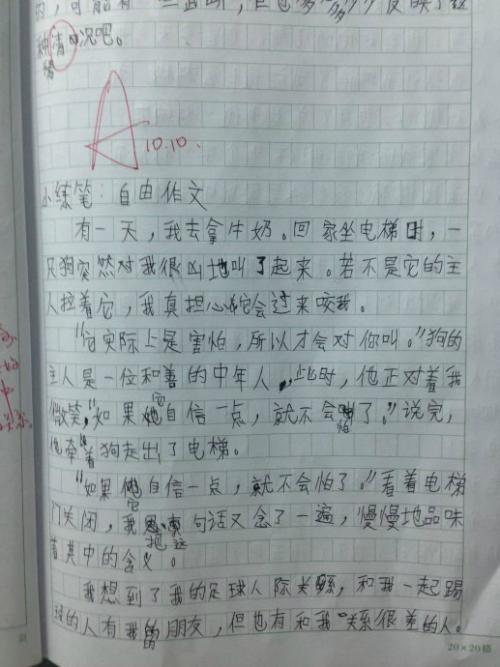 的，可能有一些
种情况吧。
绪
A
10.10.
小练笔：自由作文
有一天，我去拿牛奶。回家坐电梯时，一
只狗突然对我很凶地叫了起来。若不是它的主
人拉着它，我真担心它会过来咬我。
"它实际上是害怕，所以才会对你叫。"狗的
主人是一位和善的中年人，此时，他正对着我
微笑，"如果它自信一点，就不会怕了。"说完，
他牵着狗走出了电梯。
"如果它自信一点，就不会怕了。"看着电梯
门关闭，我把这句话又念了一遍，慢慢地品味
着其中的含义。
我想到了我的足球人际关系，和我一起踢
球的人有我的朋友，但也有和我关系很差的人。
20×20格